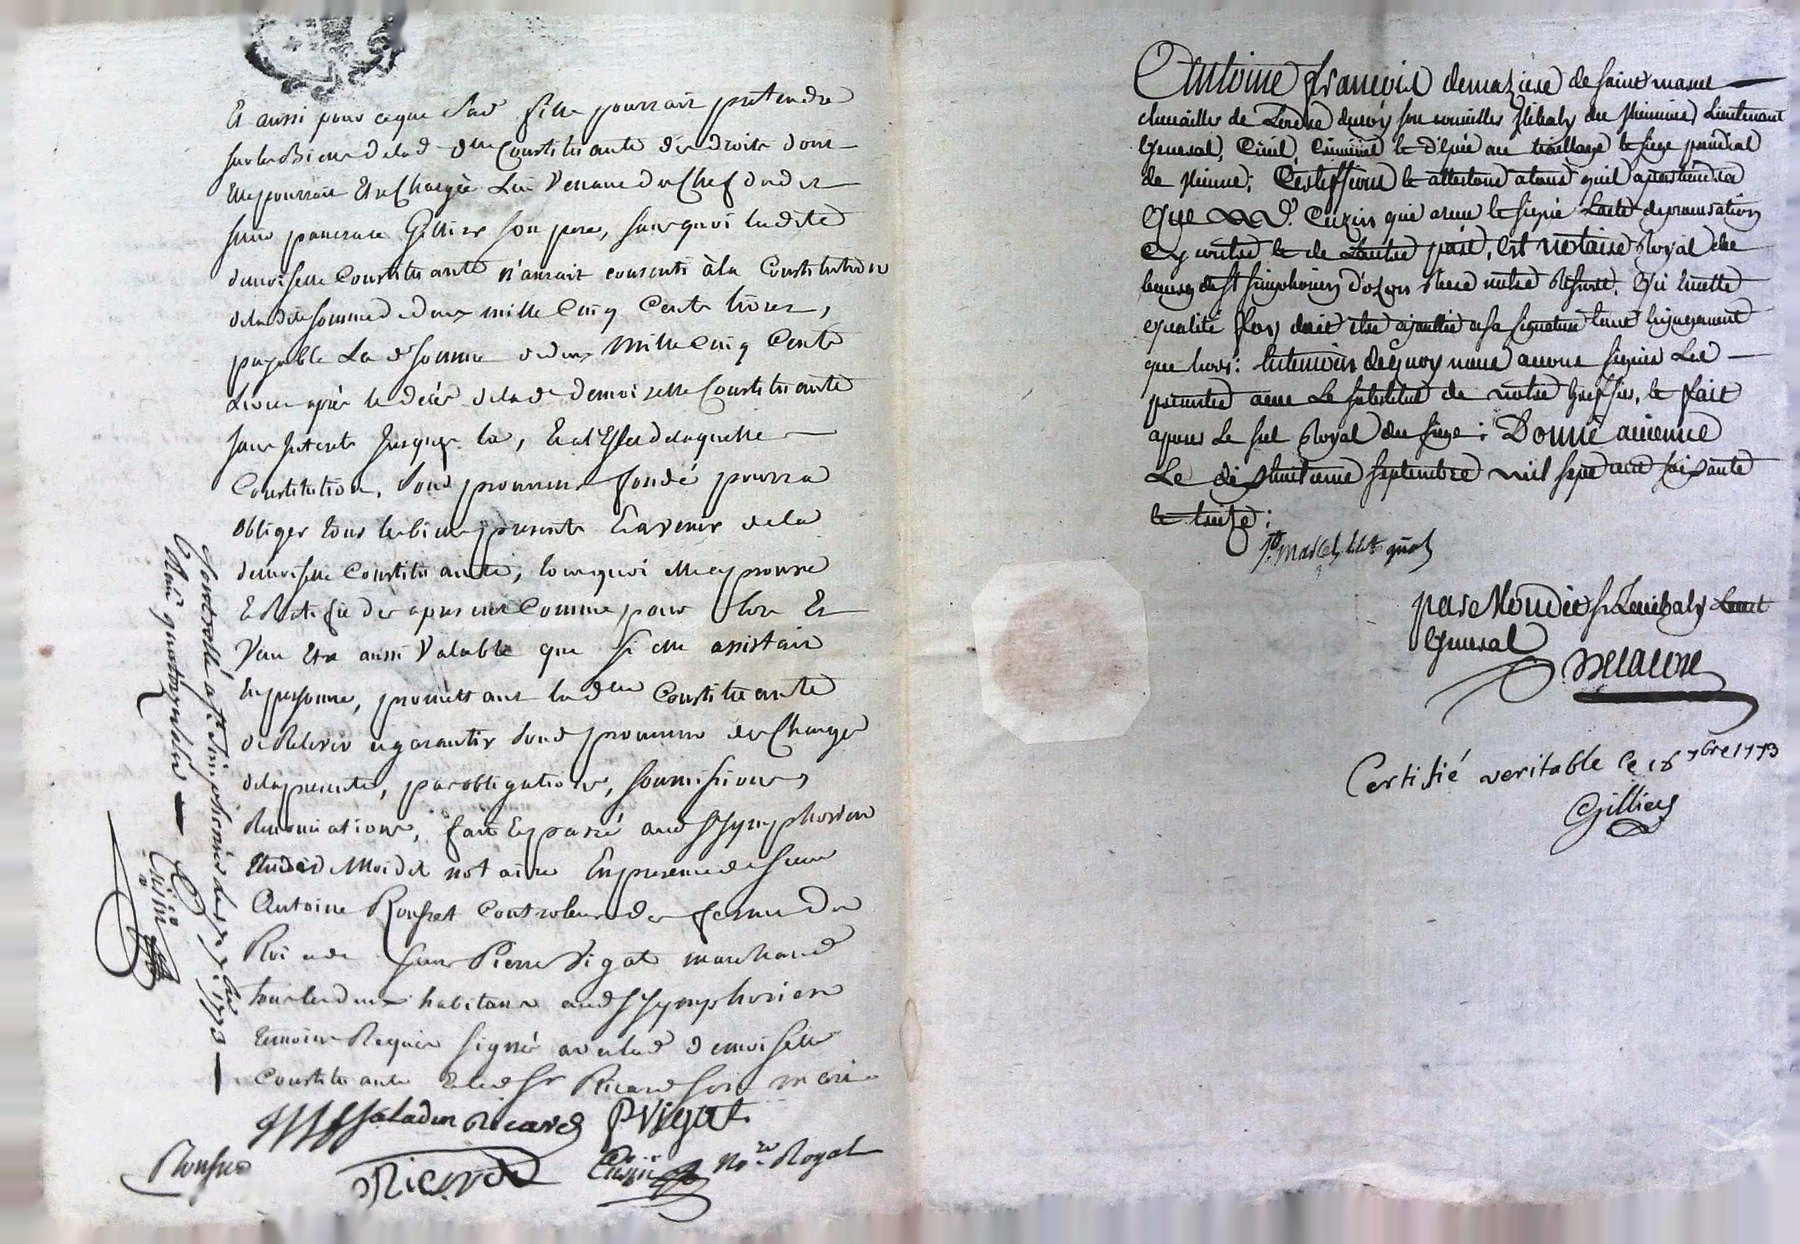 Et aussi pour ce que Lad fille pourrait pretendre
sur les Biens de lad dlle Constituante des droits dont
Elle pourrait Etre Chargée Lui Venant du Chef dudit
sieur pancrace Gillier son pere, sans quoi ladite
demoiselle Constituante n'aurait consenti à la Constitution
de ladite somme de deux mille Cinq Cents livres,
payable La d somme de deux Mille Cinq Cents
Livres après le décès de lad demoiselle Constituante
sans Interets Jusques la, Et a l'Effet de laquelle
Constitution, Sond procureur fondé pourra
obliger tous les biens presents Et avenir de la
demoiselle Constituante, Ce qu'elle approuve
Et Ratifie des apresent Comme pour lors Et
Veut Etre aussi Valable que si elle assistait
En personne, promettant lad dlle Constituante
de Relever et garantir Sond procureur des Charges
de la presente, par obligations, soumissions,
Renonciations, fait Et passé aud St Symphorien
Etude de Moi dit notaire En presence de sieur
Antoine Ronfet Controleur des fermes du
Roi et de sieur Pierre Vigat marchand
tous les deux habitans aud St Symphorien
temoins Requis signés avec lad demoiselle
Constituante Et led Sr Ricard son mari
Saladin Ricard PVigat
Ricard Cuzin Nre Royal
Controllé a St Simphorien le 1773
Reçu quatorze sols
Cuzin
Antoine François demaziere de saint marcel
chevailler de Lordre du roy son conseiller Lieutenant
General, Civil, Criminel et d'épée au bailliage et siege presidial
de Vienne; Certiffions et attestons a tous qu'il apartiendra
Que Me Cuzin qui a receu et signé Lacte de procuration
Cy contre et de Lautre part, Est notaire Royal du
bourg de St simphorien d'ozon dans notre Ressort, Qu'en cette
qualité foy doit etre ajouttée a sa signature tant En jugement
que hors: En temoin de quoy nous avons signé Les
presentes avec Le substitut de notre Greffier, et fait
aposer Le sçel Royal du siege: Donné a vienne
Le dix huitieme septembre mil sept cent soixante
et treize;
St. Marcel
par Mondit sr Lieutenant
General
Delacour
Certifié veritable ce 18 7bre 1773
Gillier